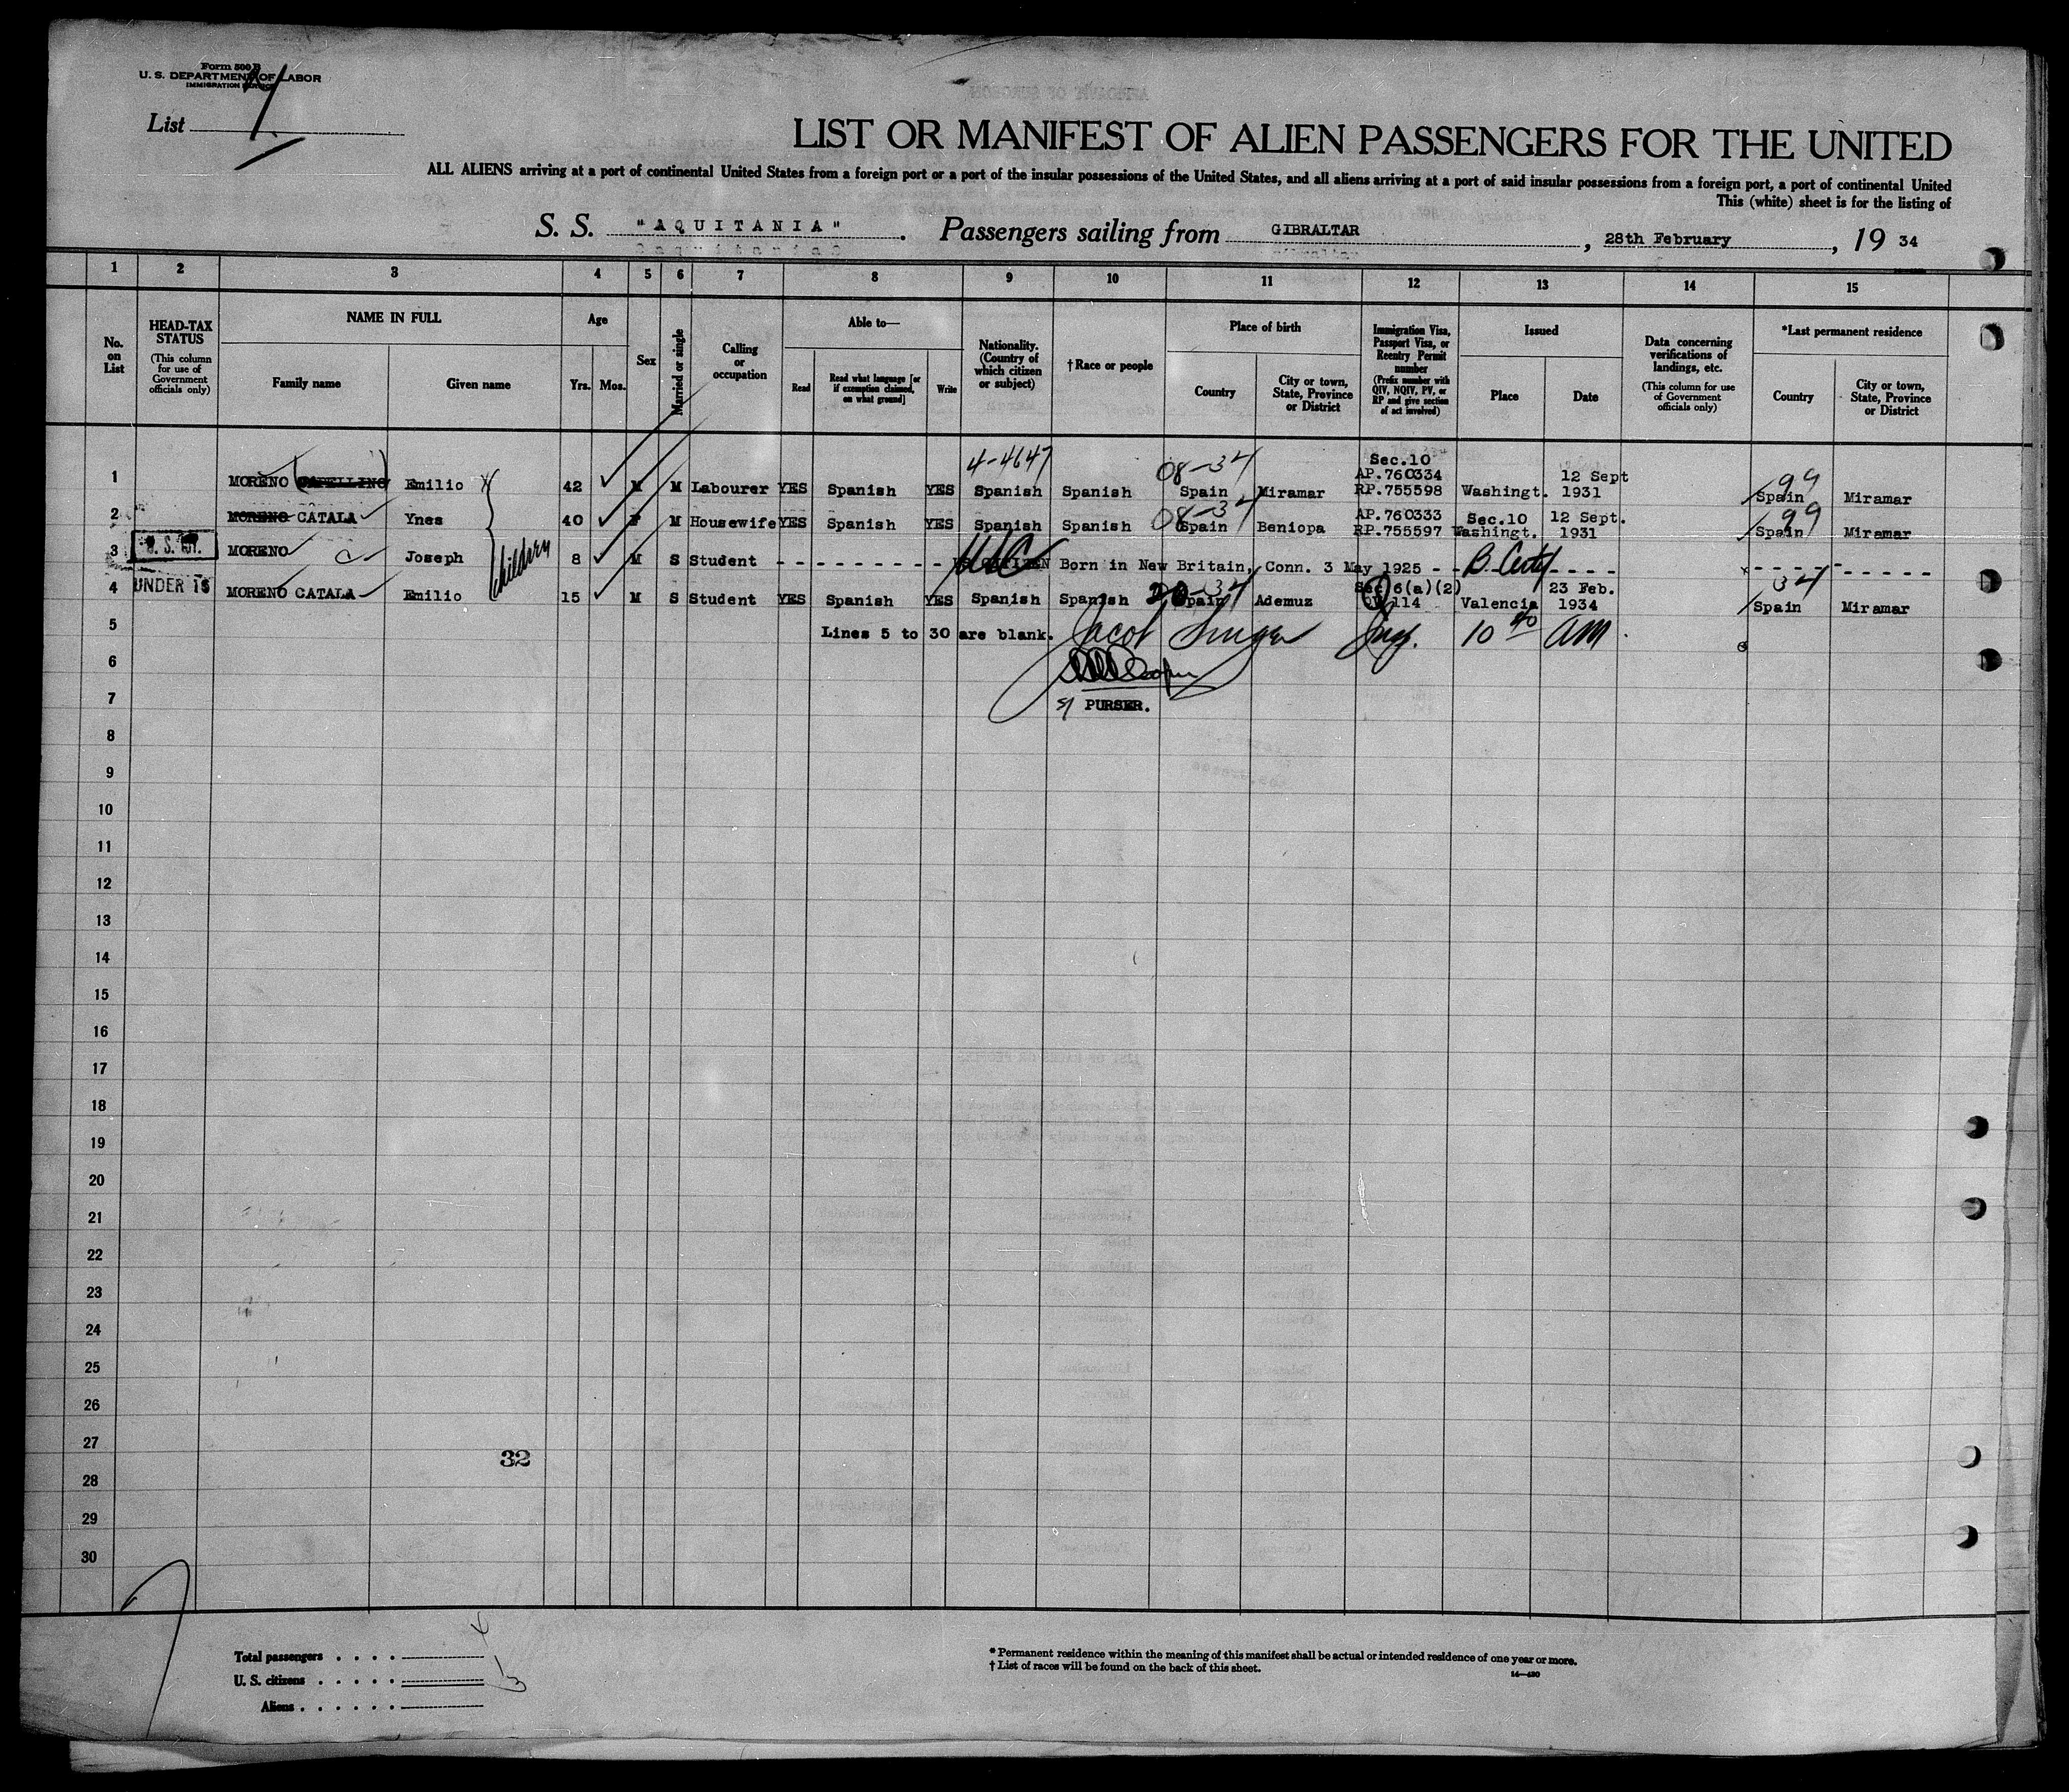 Form 500 B
U. S. DEPARTMENT OF LABOR
IMMIGRATION SERVICE
List 1
LIST OR MANIFEST OF ALIEN PASSENGERS FOR THE UNITED
ALL ALIENS arriving at a port of continental United States from a foreign port or a port of the insular possessions of the United States, and all aliens arriving at a port of said insular possessions from a foreign port, a port of continental United
This (white) sheet is for the listing of
S. S. "AQUITANIA". Passengers sailing from GIBRALTAR, 28th February, 19 34
1 2 3 4 5 6 7 8 9 10 11 12 13 14 15
No. on List
HEAD-TAX STATUS
(This column for use of Government officials only)
NAME IN FULL
Family name
Given name
Age
Yrs. Mos.
Sex
Married or single
Calling or occupation
Able to—
Read
Read what language [or if exemption claimed, on what ground]
Write
Nationality. (Country of which citizen or subject)
† Race or people
Place of birth
Country
City or town, State, Province or District
Immigration Visa, Passport Visa, or Reentry Permit number
(Prefix number with QIV, NQIV, PV, or RP and give section of act involved)
Issued
Place
Date
Data concerning verifications of landings, etc.
(This column for use of Government officials only)
*Last permanent residence
Country
City or town, State, Province or District
4-4647 08-34 Sec.10 99
1 MORENO (CAPELLINO) Emilio X 42 M M Labourer YES Spanish YES Spanish Spanish Spain Miramar AP.760334 RP.755598 Washingt. 12 Sept 1931 Spain Miramar
08-34 99
2 MORENO CATALA Ynes 40 F M Housewife YES Spanish YES Spanish Spanish Spain Beniopa AP.760333 RP.755597 Sec.10 Washingt. 12 Sept. 1931 Spain Miramar
3 MORENO C Joseph children 8 M S Student - - - - - - - - - USC Born in New Britain, Conn. 3 May 1925 - - - - - - - -
UNDER 16 34
4 MORENO CATALA Emilio 15 M S Student YES Spanish YES Spanish Spanish Spain Ademuz Sec 6(a)(2) 114 Valencia 23 Feb. 1934 Spain Miramar
5 Lines 5 to 30 are blank. Jacob 10 40 AM
6
7 PURSER.
8
9
10
11
12
13
14
15
16
17
18
19
20
21
22
23
24
25
26
27
32
28
29
30
Total passengers . . . . 4
U. S. citizens . . . . . 1
Aliens . . . . . . 3
* Permanent residence within the meaning of this manifest shall be actual or intended residence of one year or more.
† List of races will be found on the back of this sheet.
14—430